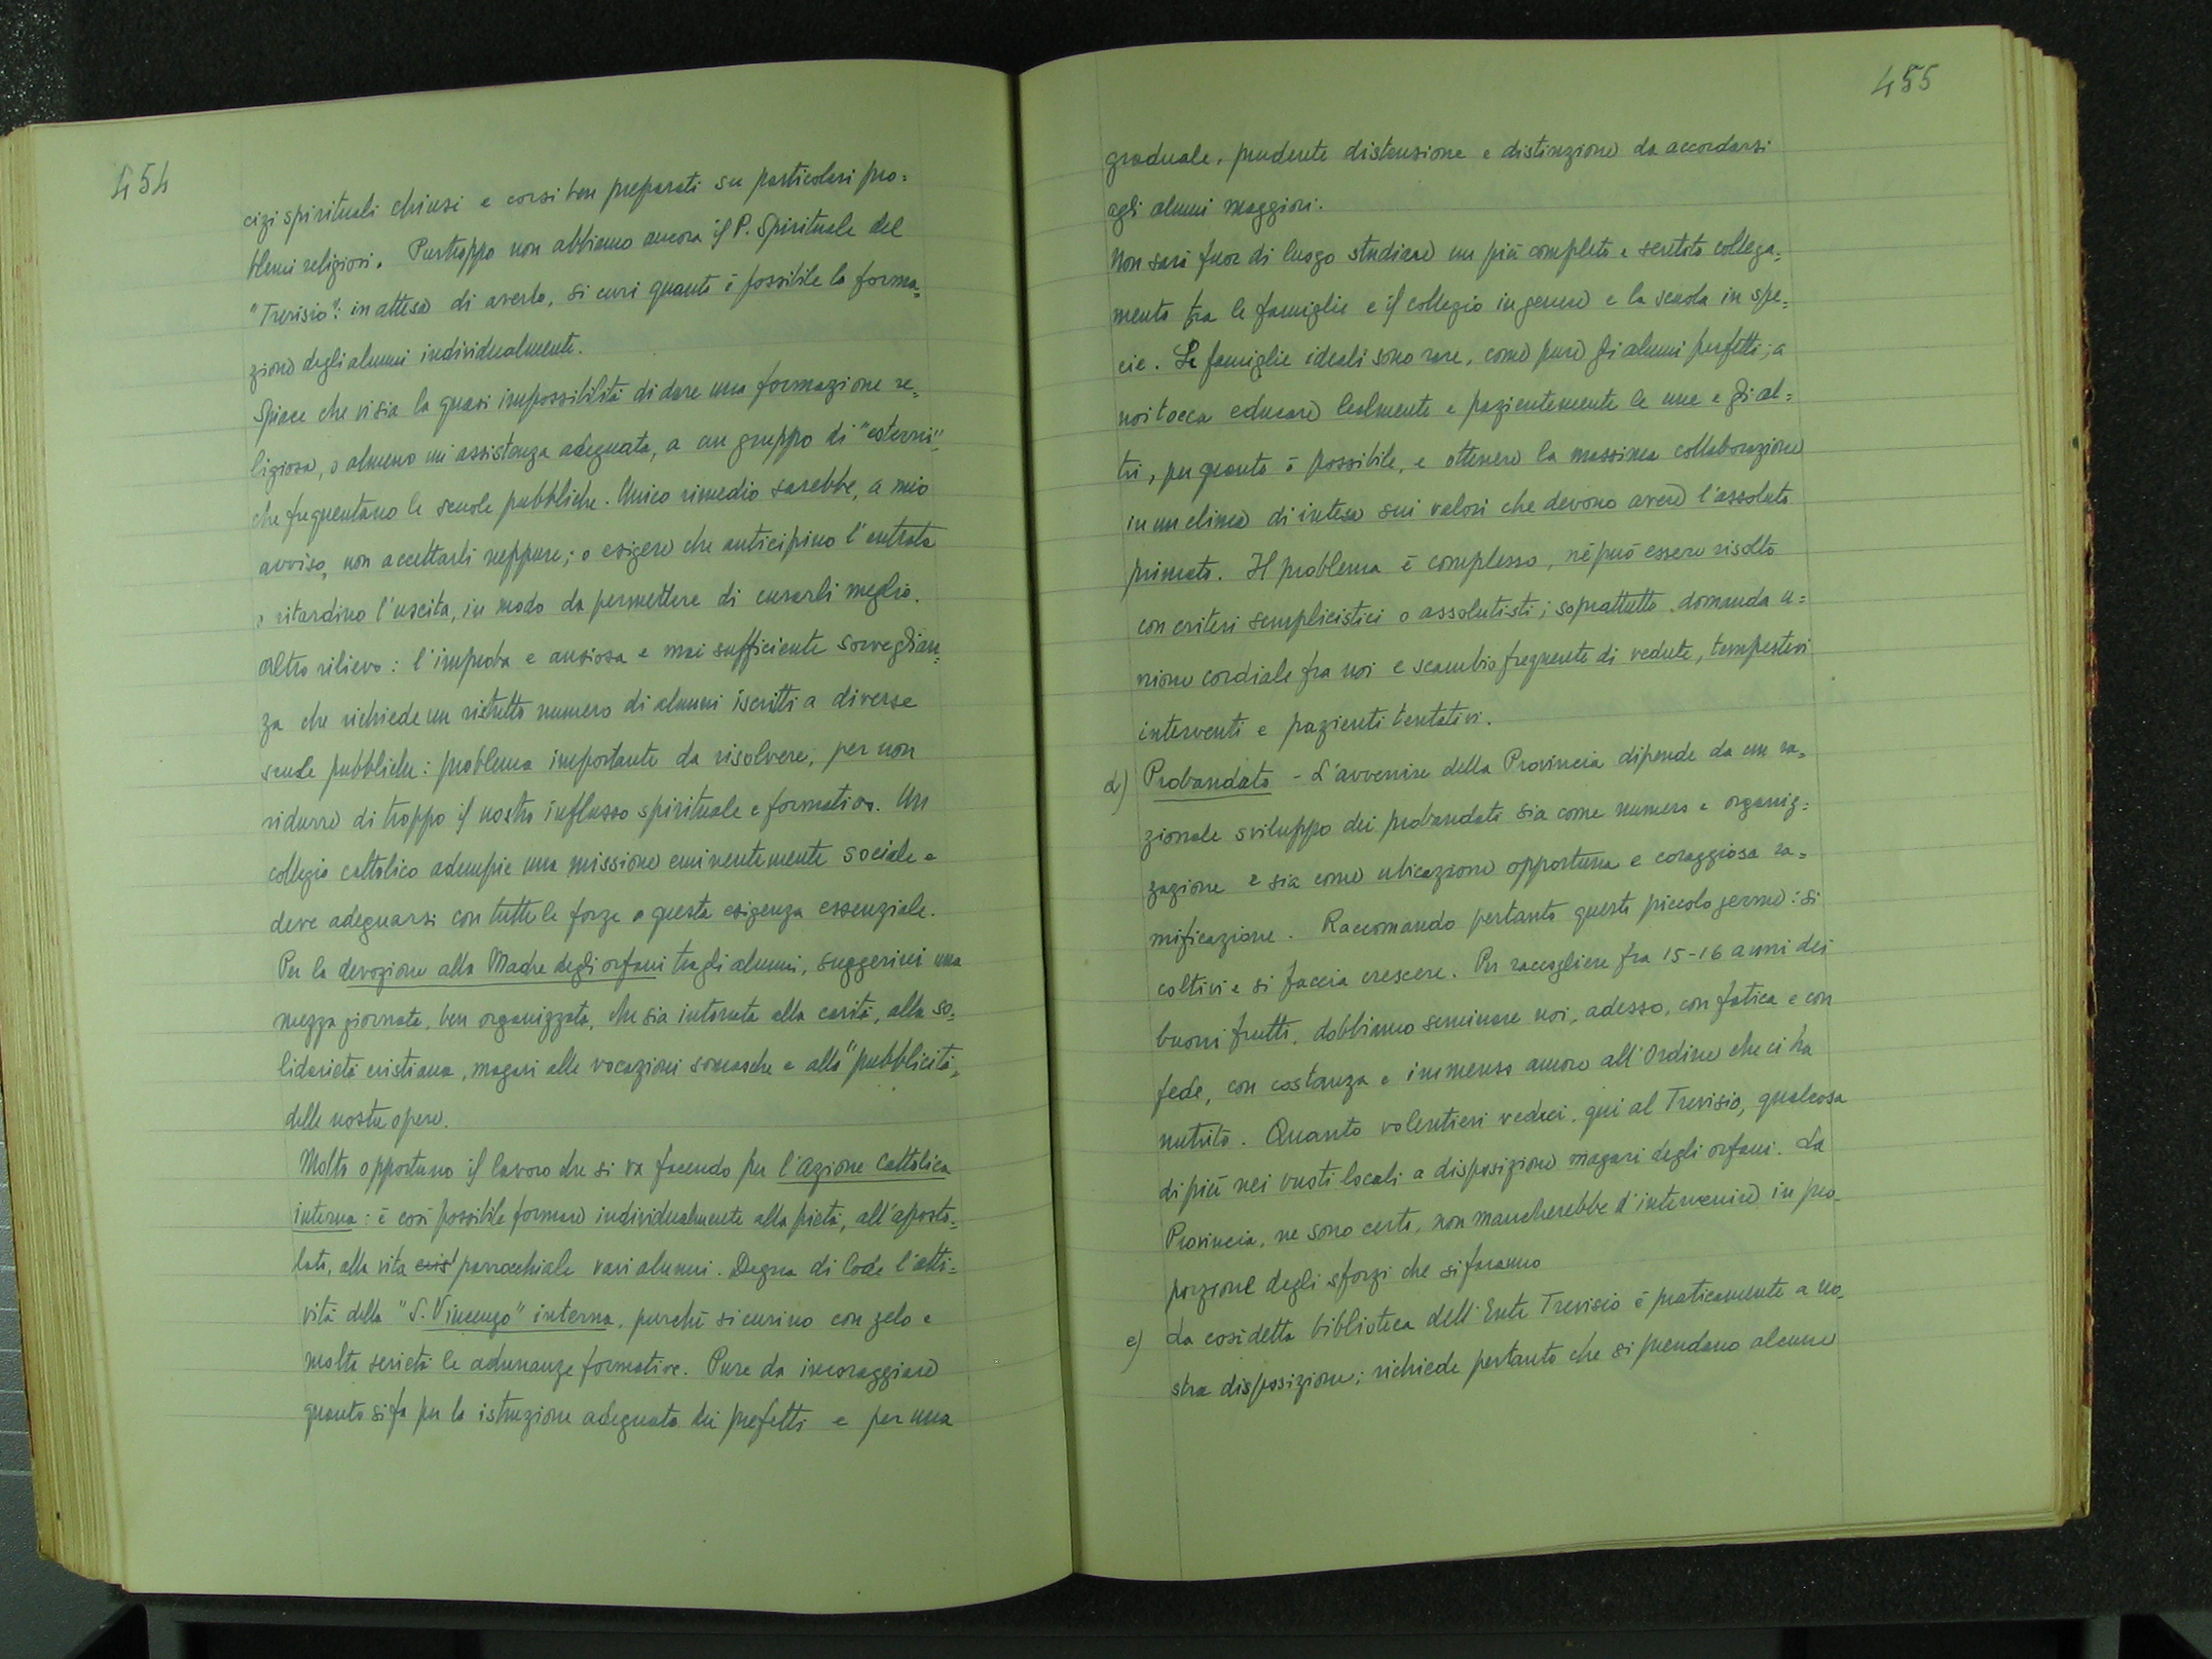 454
cizi spirituali chiusi e corsi ben preparati su particolari pro=
blemi religiosi. Purtroppo non abbiamo ancora il P. Spirituale del
"Trevisio": in attesa di averlo, si curi quanto è possibile la forma=
zione degli alunni individualmente.
Spiace che vi sia la quasi impossibilità di dare una formazione re=
ligiosa, o almeno un'assistenza adeguata, a un gruppo di "esterni"
che frequentano le scuole pubbliche. Unico rimedio sarebbe, a mio
avviso, non accettarli neppure; o esigere che anticipino l'entrata
o ritardino l'uscita, in modo da permettere di curarli meglio.
Altro rilievo: l'improba e ansiosa e mai sufficiente sorveglian=
za che richiede un ristretto numero di alunni iscritti a diverse
scuole pubbliche: problema importante da risolvere, per non
ridurre di troppo il nostro influsso spirituale e formativo. Un
collegio cattolico adempie una missione eminentemente sociale e
deve adeguarsi con tutte le forze a questa esigenza essenziale.
Per la devozione alla Madre degli orfani tra gli alunni, suggerirei una
mezza giornata, ben organizzata, che sia intonata alla carità, alla so=
lidarietà cristiana, magari alle vocazioni somasche e alla "pubblicità"
delle nostre opere.
Molto opportuno il lavoro che si va facendo per l'Azione Cattolica
interna: è così possibile formare individualmente alla pietà, all'aposto=
lato, alla vita cris parrocchiale vari alunni. Degna di lode l'atti=
vità della "S. Vincenzo" interna, purchè si curino con zelo e
molta serietà le adunanze formative. Pure da incoraggiare
quanto si fa per la istruzione adeguata dei prefetti e per una
455
graduale, prudente distensione e distinzione da accordarsi
agli alunni maggiori.
Non sarà fuor di luogo studiare un più completo e sentito collega=
mento tra le famiglie e il collegio in genere e la scuola in spe=
cie. Le famiglie ideali sono rare, come pure gli alunni perfetti; a
noi tocca educare lealmente e pazientemente le une e gli al=
tri, per quanto è possibile, e ottenere la massima collaborazione
in un clima di intesa sui valori che devono avere l'assoluto
primato. Il problema è complesso, nè può essere risolto
con criteri semplicistici o assolutisti; soprattutto domanda u=
nione cordiale fra noi e scambio frequente di vedute, tempestivi
interventi e pazienti tentativi.
d) Probandato - L'avvenire della Provincia dipende da un ra=
zionale sviluppo dei probandati sia come numero e organiz=
zazione e sia come ubicazione opportuna e coraggiosa ra=
mificazione. Raccomando pertanto questo piccolo germe: si
coltivi e si faccia crescere. Per raccogliere fra 15-16 anni dei
buoni frutti, dobbiamo seminare noi, adesso, con fatica e con
fede, con costanza e immenso amore all'Ordine che ci ha
nutrito. Quanto volentieri vedrei, qui al Trevisio, qualcosa
di più nei vuoti locali a disposizione magari degli orfani. La
Provincia, ne sono certo, non mancherebbe d'intervenire in pro=
porzione degli sforzi che si faranno
e) La cosidetta biblioteca dell'Ente Trevisio è praticamente a no=
stra disposizione; richiede pertanto che si prendano alcune